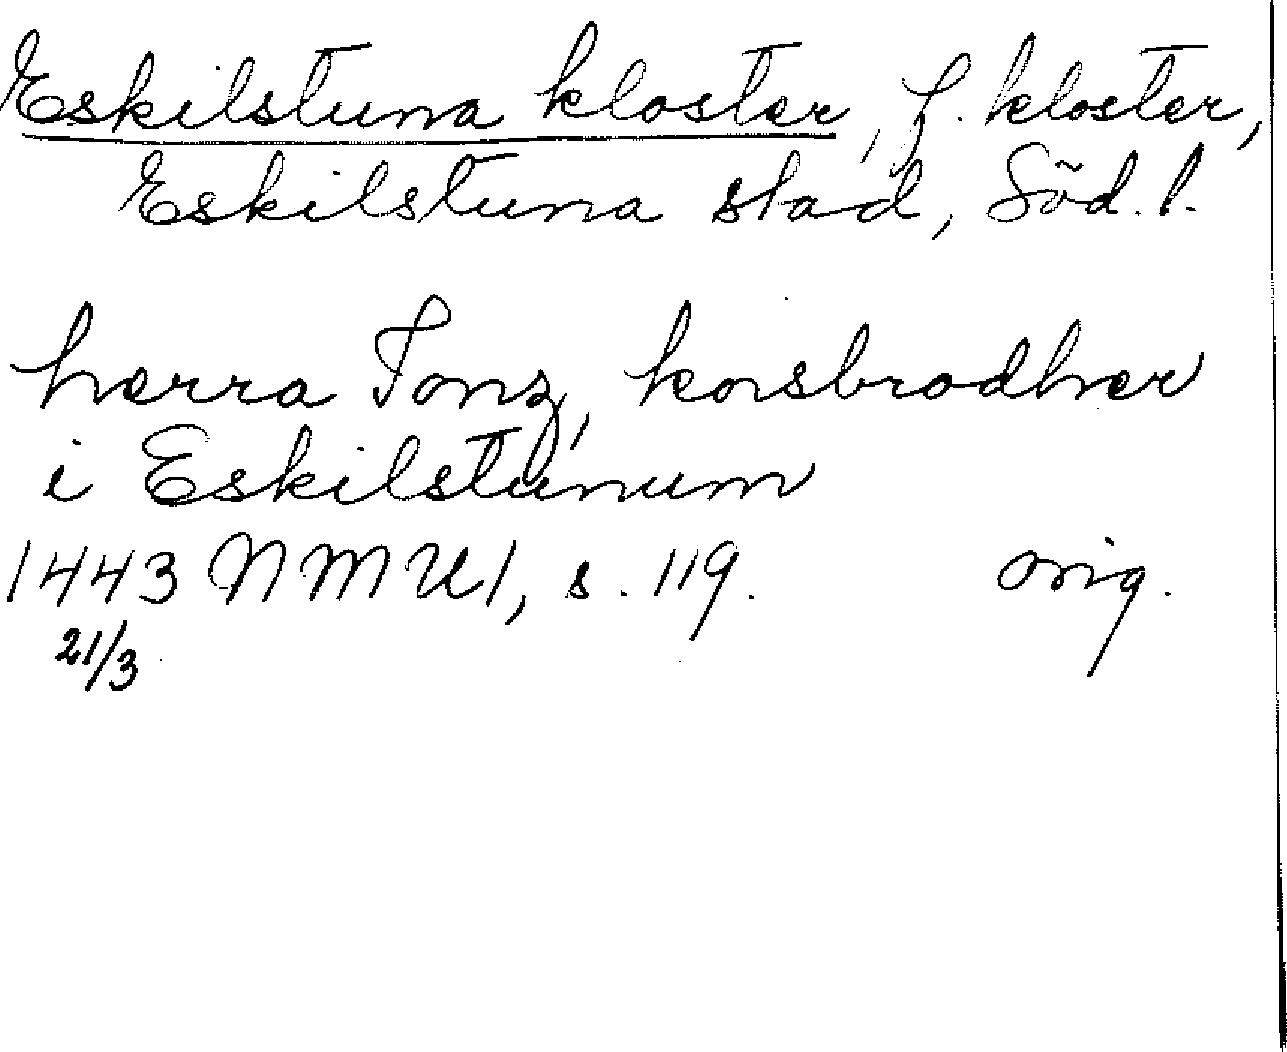 Eskilstuna kloster, f. kloster,
Eskilstuna stad, Söd. l.
hærra Jonz, korsbrodher
i Eskilstunum
1443 NMU1, s. 119. orig.
21/3